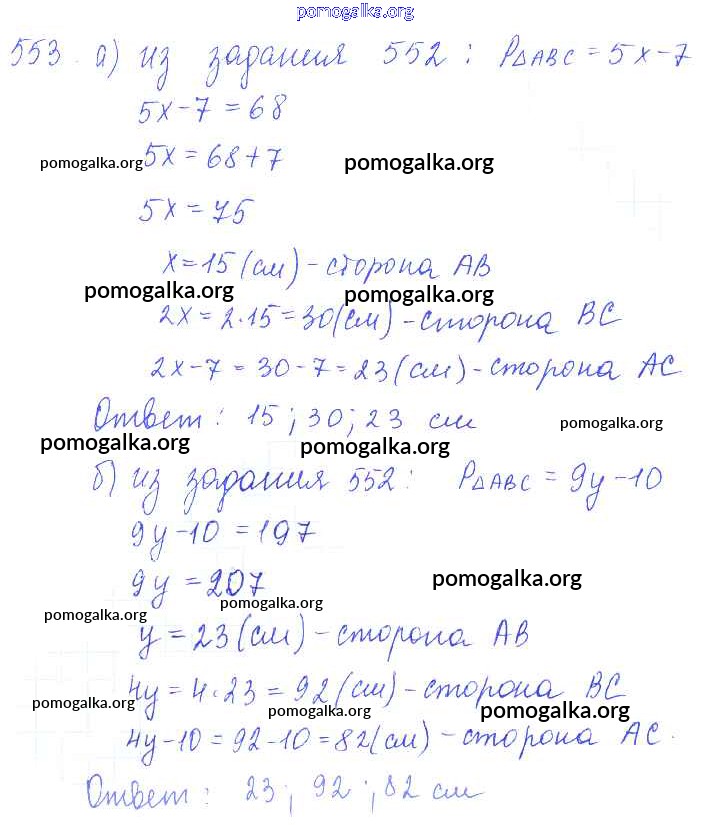 pomogalka.org
553. а) из задания 552: P△ABC = 5x-7
5x-7=68
pomogalka.org 5x=68+7 pomogalka.org
5x=75
x=15(см)-сторона AB
pomogalka.org pomogalka.org
2x=2·15=30(см)-сторона BC
2x-7=30-7=23(см)-сторона AC
Ответ: 15; 30; 23 см pomogalka.org
pomogalka.org pomogalka.org
б) из задания 552: P△ABC = 9y-10
9y-10=197
9y=207 pomogalka.org
pomogalka.org pomogalka.org
y=23(см)-сторона AB
4y=4·23=92(см)-сторона BC
pomogalka.org pomogalka.org pomogalka.org
4y-10=92-10=82(см)-сторона AC.
Ответ: 23; 92; 82 см